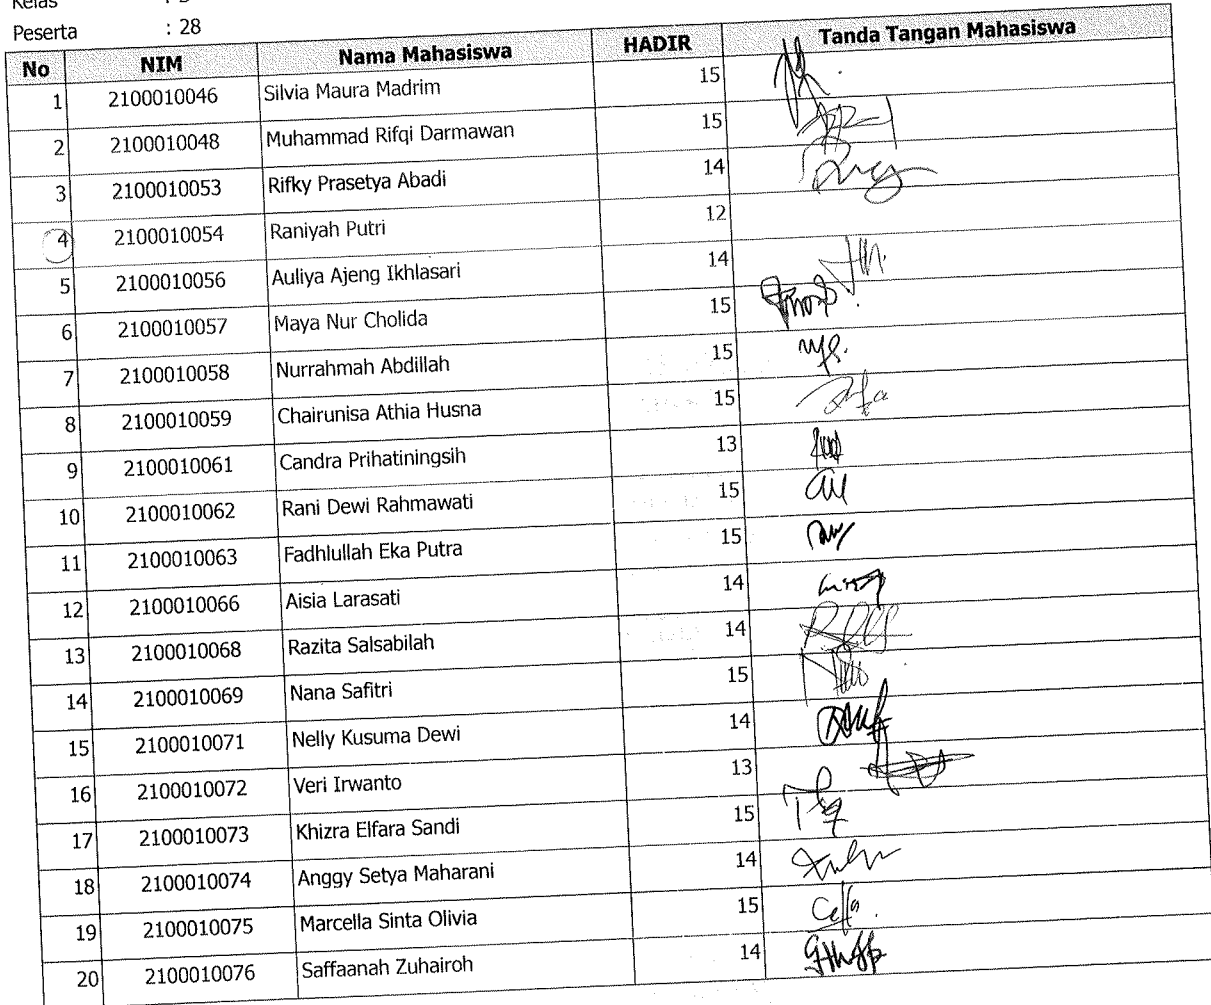 Kelas
Peserta : 28
No NIM Nama Mahasiswa HADIR Tanda Tangan Mahasiswa
1 2100010046 Silvia Maura Madrim 15
2 2100010048 Muhammad Rifqi Darmawan 15
3 2100010053 Rifky Prasetya Abadi 14
4 2100010054 Raniyah Putri 12
5 2100010056 Auliya Ajeng Ikhlasari 14
6 2100010057 Maya Nur Cholida 15
7 2100010058 Nurrahmah Abdillah 15
8 2100010059 Chairunisa Athia Husna 15
9 2100010061 Candra Prihatiningsih 13
10 2100010062 Rani Dewi Rahmawati 15
11 2100010063 Fadhlullah Eka Putra 15
12 2100010066 Aisia Larasati 14
13 2100010068 Razita Salsabilah 14
14 2100010069 Nana Safitri 15
15 2100010071 Nelly Kusuma Dewi 14
16 2100010072 Veri Irwanto 13
17 2100010073 Khizra Elfara Sandi 15
18 2100010074 Anggy Setya Maharani 14
19 2100010075 Marcella Sinta Olivia 15
20 2100010076 Saffaanah Zuhairoh 14